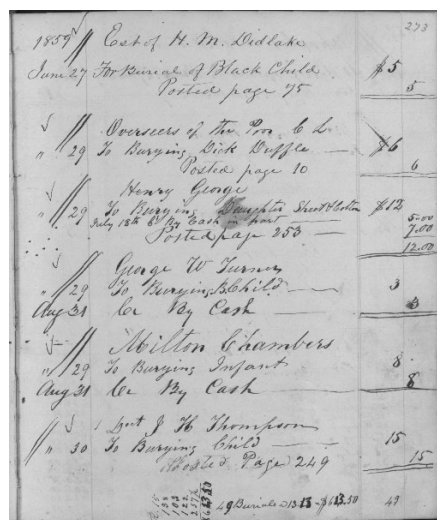 273
1859 Est of H. M. Didlake
June 27 For Burial of Black Child $5
Posted page 75 5
Overseers of the Poor C L
" 29 To Burying Dick Duffle $6
Posted page 10 6
Henry George
" 29 To Burying Daughter Shroud & Cotton $12
July 18th Cr By Cash in part 5.00
Posted page 253 7.00
12.00
George W Turner
" 29 To Burying B Child 3
Aug 31 Cr By Cash 3
Milton Chambers
" 29 To Burying Infant 8
Aug 31 Cr By Cash 8
J H Thompson
" 30 To Burying Child 15
Posted Page 249 15
49 Burials 13 13 - $613.50 49